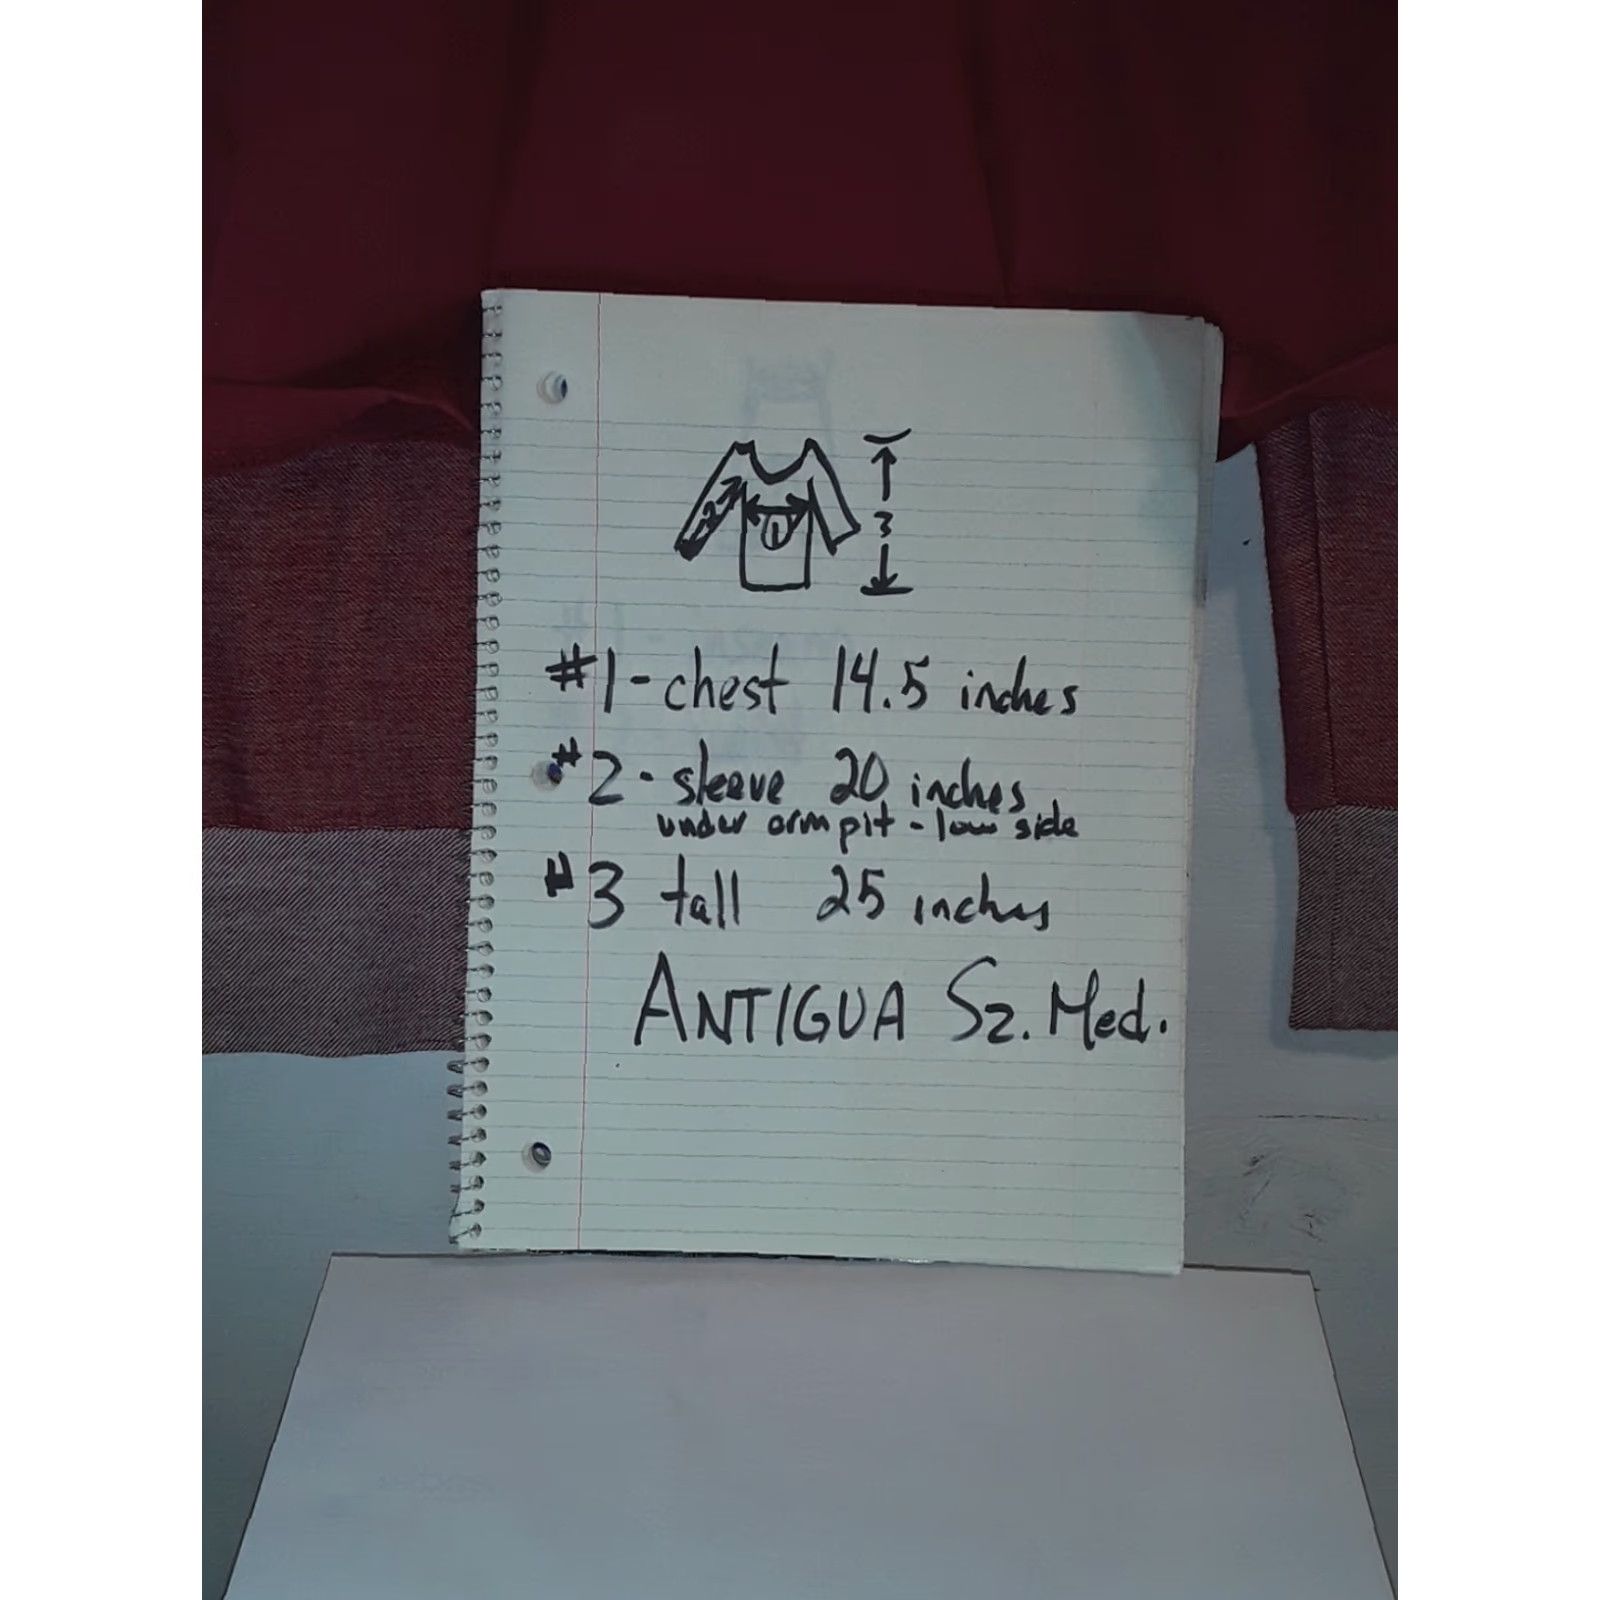 2
1
3
#1 - chest 14.5 inches
#2 - sleeve 20 inches
under armpit - low side
#3 tall 25 inches
ANTIGUA Sz. Med.